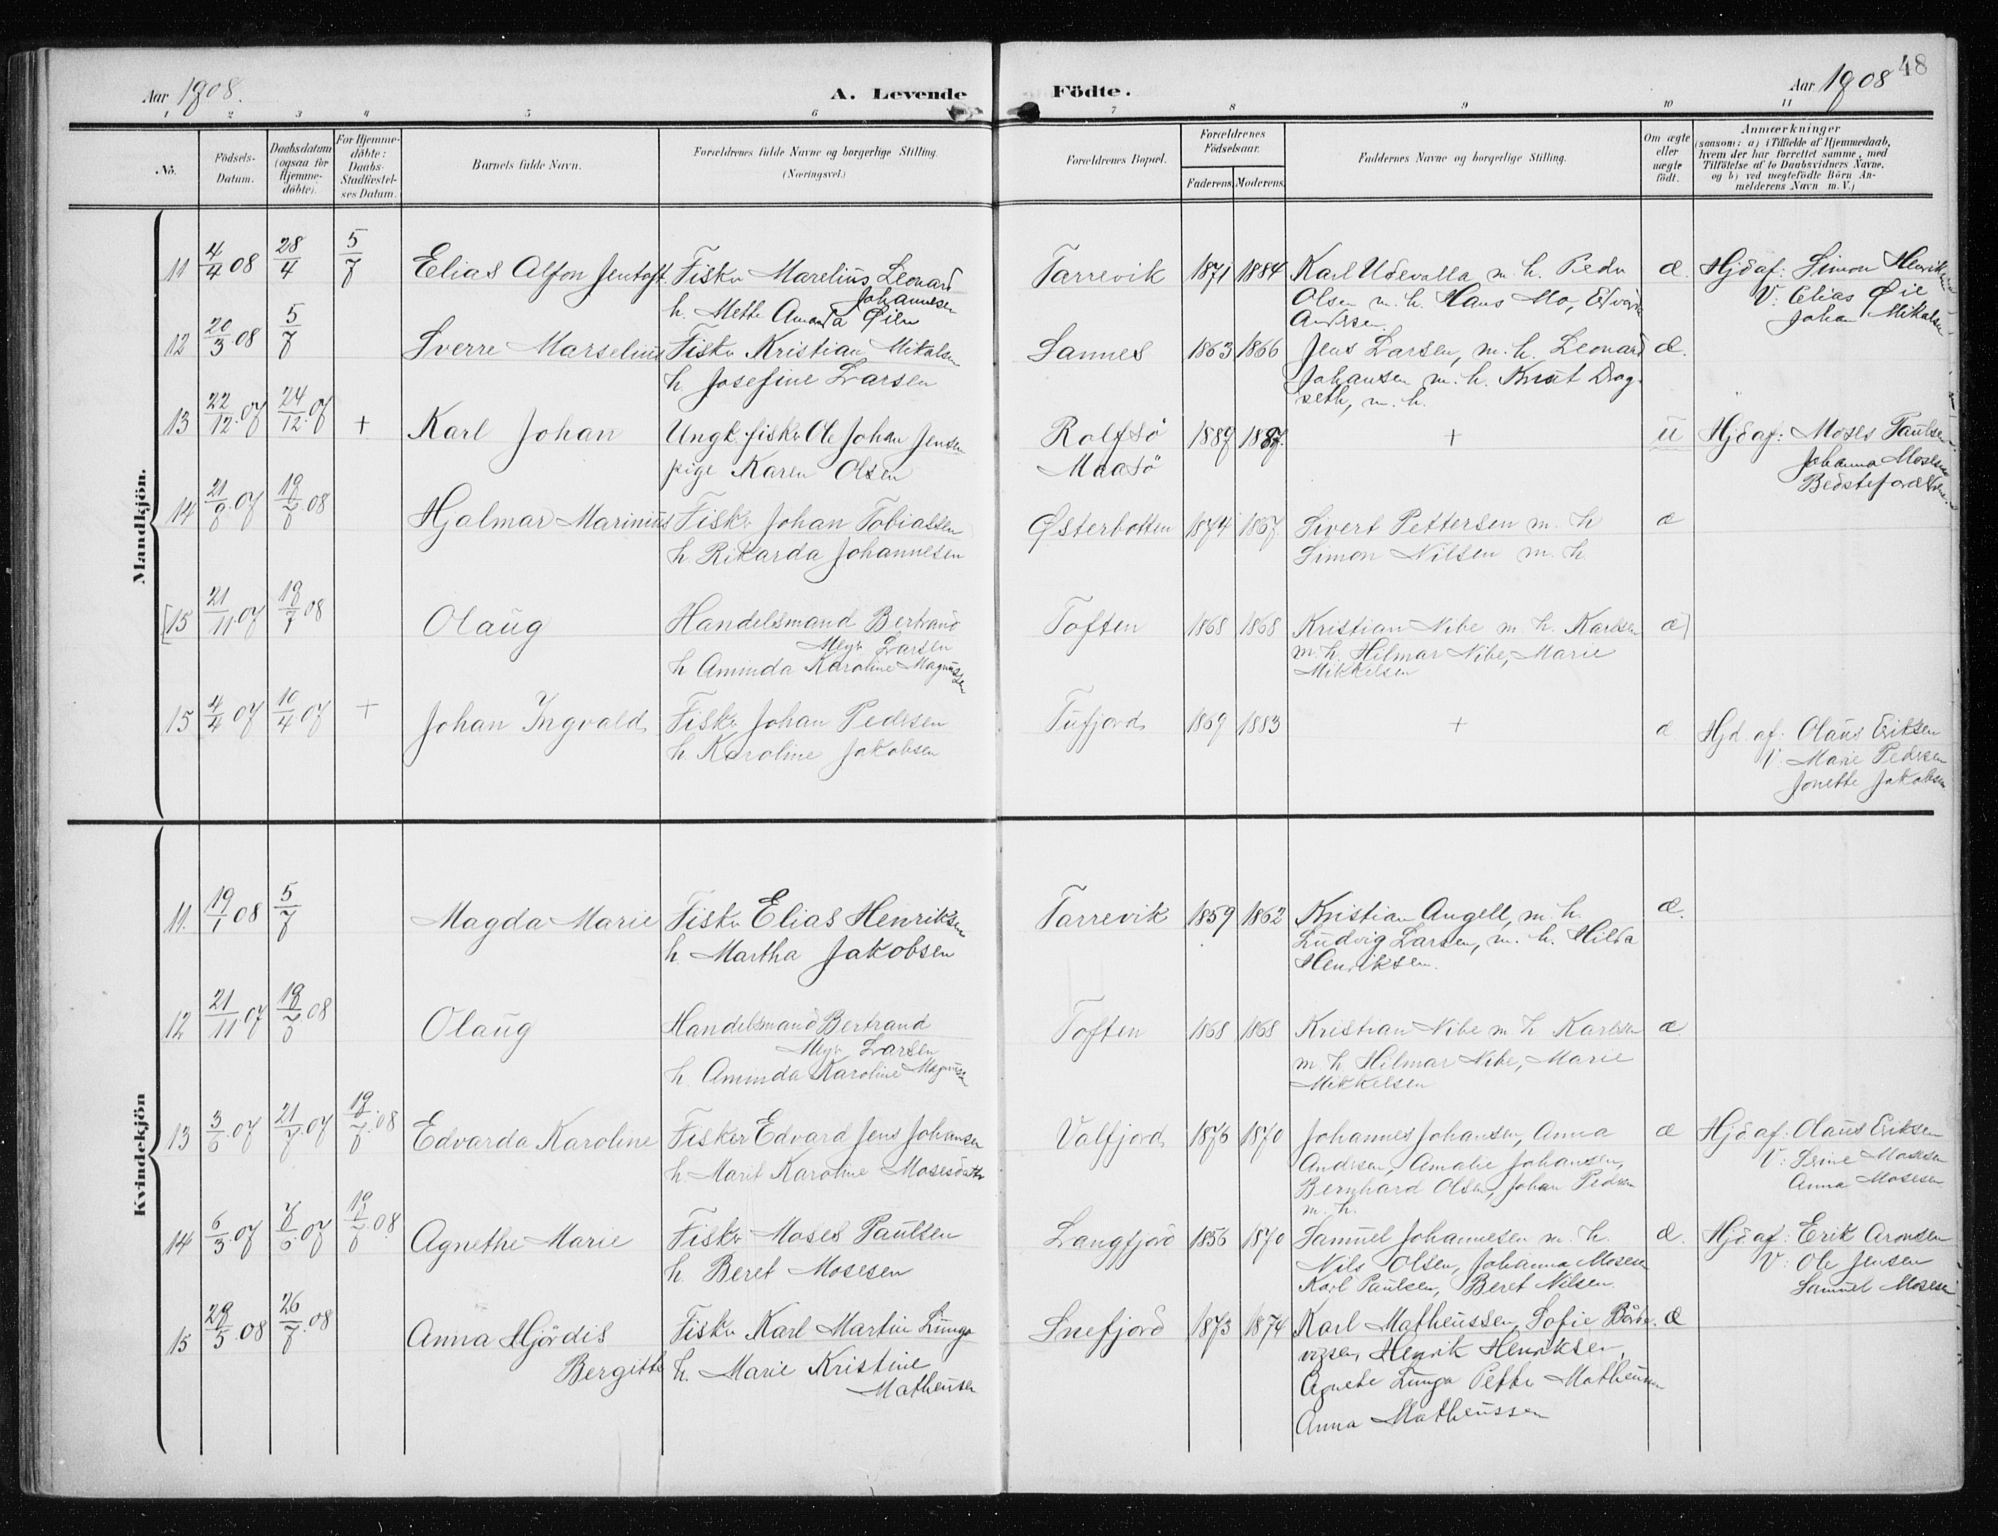 48
Aar 1908.
A. Levende Födte.
Aar 1908
1 2 3 4 5 6 7 8 9 10 11
No.
Födsels-Datum.
Daabsdatum (ogsaa for Hjemme-döbte).
For Hjemme-döbte: Daabs-Stadfæstel-ses Datum.
Barnets fulde Navn.
Forældrenes fulde Navne og borgerlige Stilling. (Næringsvei.)
Forældrenes Bopæl.
Forældrenes Födselsaar.
Faderens. Moderens.
Faddernes Navne og borgerlige Stilling.
Om ægte eller uægte födt.
Anmærkninger
(saasom: a) i Tilfælde af Hjemmedaab,
hvem der har forrettet samme, med
Tilföielse af to Daabsvidners Navne,
og b) ved uægtefödte Börn An-
melderens Navn m. V.)
Mandkjön.
11 4/4 08 28/4 5/7 Elias Alfon Jentoft. Fisker Marelius Leonard Tarrevik 1871 1884 Karl Udevalla m. h. Peder æ. Hjd af: Simon Henriksen
Johannesen
h. Mette Amanda Øien Olsen m. h. Hans Mo, Edvard V: Elias Øie
Andrsen. Johan Mikalsen
12 20/3 08 5/7 Sverre Marselius Fisker Kristian Mikalsen Sannes 1863 1866 Jens Larsen, m. h. Leonard æ.
h. Josefine Larsen Johansen m. h. Knut Drag-
seth, m. h.
13 22/12 07 24/12 07 + Karl Johan Ungk. fisker Ole Johan Jensen Rolfsö 1887 1887 + u Hjd af: Moses Paulsen
pige Karen Olsen Maasö Johanna Mosesen
Bedsteforældrene.
14 21/8 07 19/7 08 Hjalmar Marinius Fisker Johan Tobiassen Østerbotten 1874 1867 Sivert Pettersen m. h æ
h. Rikarda Johannesen Simon Nilsen m. h
[15 21/11 07 19/7 08 Olaug Handelsmand Bertrand Toften 1868 1868 Kristian Nibe m. h. Karlsen æ]
Meyer Larsen m. h. Hilmar Nibe, Marie
h Aminda Karoline Magnussen Mikkelsen
15 4/4 07 10/4 07 + Johan Ingvald Fisker Johan Pedersen Tufjord 1869 1883 + æ Hjd. af: Olaus Eriksen
h Karoline Jakobsen V: Marie Pedersen
Jonette Jakobsen
Kvindekjön
11. 19/1 08 5/7 Magda Marie Fisker Elias Henriksen Tarrevik 1859 1862 Kristian Angell, m. h. æ.
h Martha Jakobsen Ludvig Larsen, m. h. Hilda
Henriksen.
12 21/11 07 19/7 08 Olaug Handelsmand Bertrand Toften 1868 1868 Kristian Nibe m. h Karlsen æ
Meyer Larsen m h Hilmar Nibe, Marie
h. Aminda Karoline Magnussen Mikkelsen
13 3/6 07 21/7 07 19/7 08 Edvarda Karoline Fisker Edvard Jens Johansen Valfjord 1876 1870 Johannes Johansen, Anna æ Hjd af: Olaus Eriksen
h. Marit Karoline Mosesdatter Andersen, Amalie Johansen, V: Serine Mosesen
Bernhard Olsen, Johan Pedersen Anna Mosesen
m. h.
14 6/3 07 7/6 07 19/7 08. Agnethe Marie Fisker Moses Paulsen Langfjord 1856 1870 Samuel Johannesen m. h. æ. Hjd af: Erik Aronsen
h. Beret Mosesen Nils Olsen, Johanna Mosesen V: Ole Jensen
Karl Paulsen, Beret Nilsen Samuel Mosesen
15 29/5 08 26/7 08 Anna Hjördis Fisker Karl Martin Lunga Snefjord 1873 1874 Karl Matheussen, Sofie æ
Bergitte h. Marie Kristine Henrik Henriksen,
Matheusen Agnete Lunga Petter Matheussen
Anna Matheussen